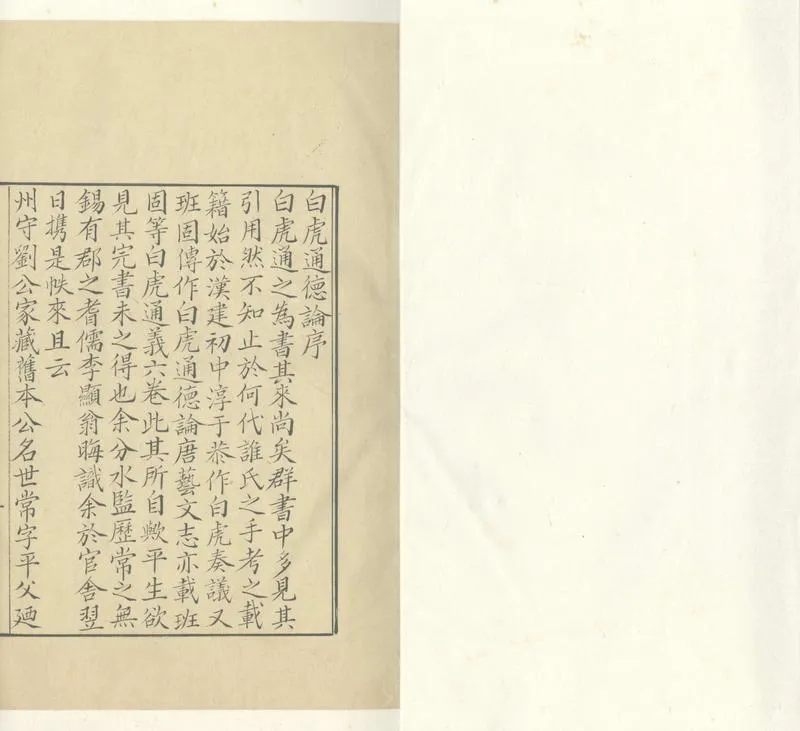 白虎通德論序
白虎通之為書其來尚矣群書中多見其
引用然不知止於何代誰氏之手考之載
籍始於漢建初中淳于恭作白虎奏議又
班固傳作白虎通德論唐藝文志亦載班
固等白虎通義六卷此其所自歟平生欲
見其完書未之得也余分水監歷常之無
錫有郡之耆儒李顯翁晦識余於官舍翌
日携是帙來且云
州守劉公家藏舊本公名世常字平父廼